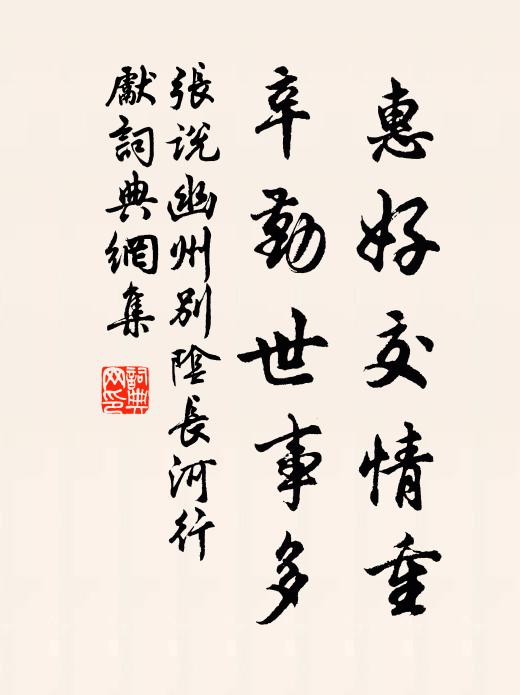 惠好交情重
辛勤世事多
張說幽州別陰長河行
獻詞典網集
詞典網印